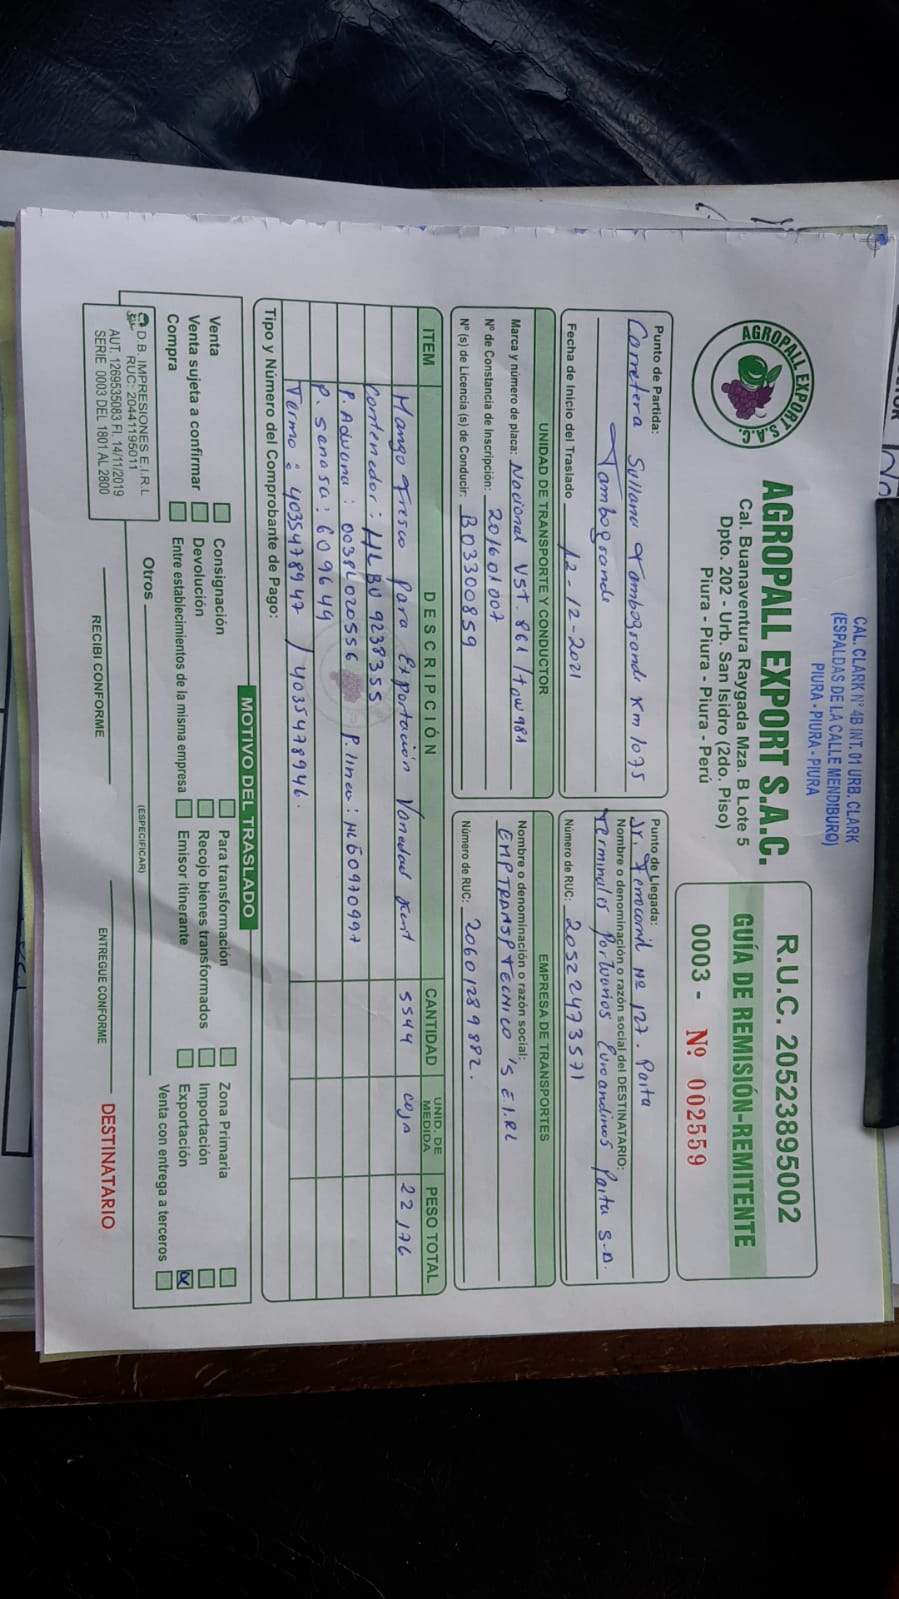 CAL. CLARK N° 4B INT. 01 URB. CLARK
(ESPALDAS DE LA CALLE MENDIBURO)
PIURA - PIURA - PIURA
AGROPALL EXPORT S.A.C.
AGROPALL EXPORT S.A.C.
Cal. Buanaventura Raygada Mza. B Lote 5
Dpto. 202 - Urb. San Isidro (2do. Piso)
Piura - Piura - Piura - Perú
R.U.C. 20523895002
GUÍA DE REMISIÓN-REMITENTE
0003 - Nº 002559
Punto de Partida:
Carretera Sullana Tambogrande Km 1075
Tambogrande
Fecha de Inicio del Traslado 12-12-2021
Punto de Llegada:
Jr. Ferrocarril Nº 127. Paita
Nombre o denominación o razón social del DESTINATARIO:
Terminales Portuarios Euroandinos Paita S.A.
Número de RUC: 20522473571
UNIDAD DE TRANSPORTE Y CONDUCTOR
Marca y número de placa: Nacional VST. 861 / tow 981
Nº de Constancia de Inscripción: 201601007
Nº (s) de Licencia (s) de Conducir: B03300859
EMPRESA DE TRANSPORTES
Nombre o denominación o razón social:
EMPTRANSPTECNICO'S E.I.RL
Número de RUC: 20601289882.
ITEM DESCRIPCIÓN CANTIDAD UNID. DE MEDIDA PESO TOTAL
Mango Fresco Para Exportación Variedad Kent 5544 caja 22,176
Contenedor: HLBU 9238355
P. Aduana: 0038L020556 P. linea: HL60970997
P. Senasa: 609644
Termo: 4035478947 / 4035478946.
Tipo y Número del Comprobante de Pago:
MOTIVO DEL TRASLADO
Venta Consignación Para transformación Zona Primaria
Venta sujeta a confirmar Devolución Recojo bienes transformados Importación
Compra Entre establecimientos de la misma empresa Emisor itinerante Exportación X
Venta con entrega a terceros
Otros
(ESPECIFICAR)
D.B. IMPRESIONES E.I.R.L
RUC: 20441195011
AUT. 1269535083 FI. 14/11/2019
SERIE 0003 DEL 1801 AL 2800
RECIBI CONFORME
ENTREGUE CONFORME
DESTINATARIO